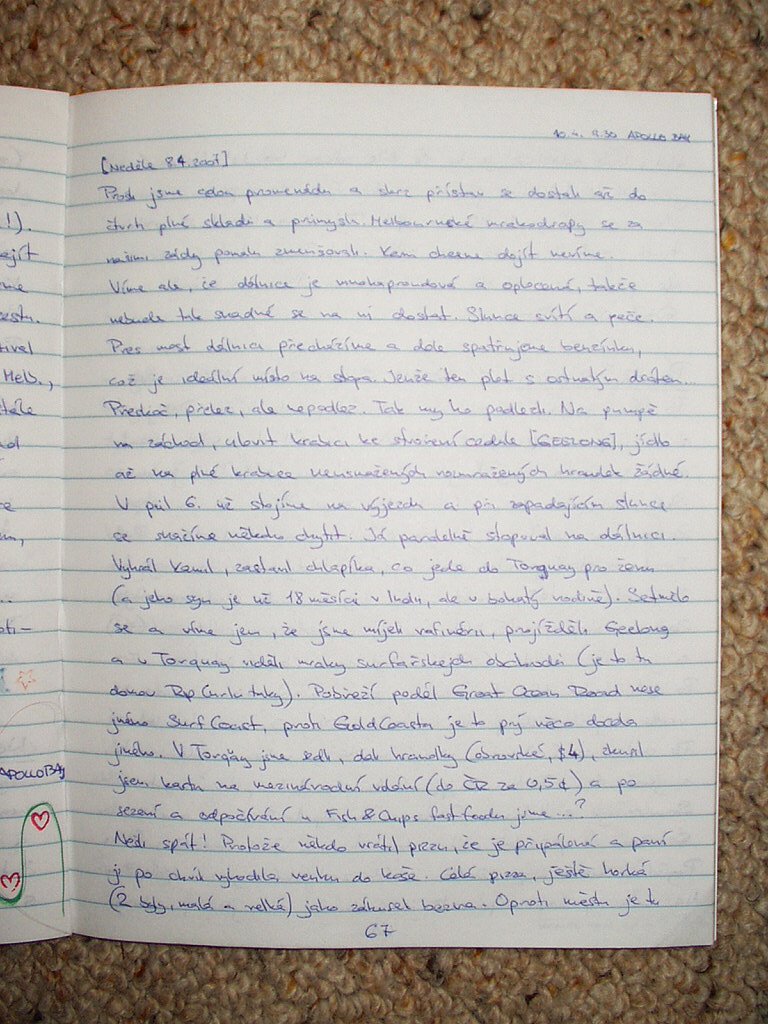 10.4. 9:30 APOLLO BAY
[Neděle 8.4.2007]
Prošli jsme celou promenádu a skrz přístav se dostali až do
čtvrti plné skladů a průmyslu. Melbournské mrakodrapy se za
našimi zády pomalu zmenšovali. Kam chceme dojít nevíme.
Víme ale, že dálnice je mnohaproudová a oplocená, takže
nebude tak snadné se na ni dostat. Slunce svítí a peče.
Přes most dálnici přecházíme a dole spatřujeme benzínku,
což je ideální místo na stopa. Jenže ten plot s ostnatým drátem...
Předkoč, přelez, ale nepodlez. Tak my ho podlezli. Na pumpě
na záchod, ulovit krabici ke stvoření cedule [GEELONG], jídlo
až na plné krabice neusmažených rozmražených hranolek žádné.
V půl 6. už stojíme na výjezdu a při zapadajícím slunce
se snažíme někoho chytit. Já paralelně stopoval na dálnici.
Vyhrál Kamil, zastavil chlapíka, co jede do Torquay pro ženu
(a jeho syn je už 18 měsíců v Indii, ale u bohatý rodině). Setmělo
se a víme jen, že jsme míjeli rafinérii, projížděli Geelong
a v Torquay viděli mraky surfařskejch obchodů (je to tu
domov Rip Curlu taky). Pobřeží podél Great Ocean Road nese
jméno Surf Coast, proti GoldCoastu je to prý něco docela
jiného. V Torquay jsme sedli, dali hranolky (obrovské, $4), zkusil
jsem kartu na mezinárodní volání (do ČR za 0,5¢) a po
sezení a odpočívání u Fish & Chips fast foodu jsme...?
Nešli spát! Protože někdo vrátil pizzu, že je připálená a paní
ji po chvíli vyhodila venku do koše. Celá pizza, ještě horká
(2 byly, malá a velká) jako zákusek bezva. Oproti městu je tu
67
!).
ejít
Melb.,
APOLLO BAY